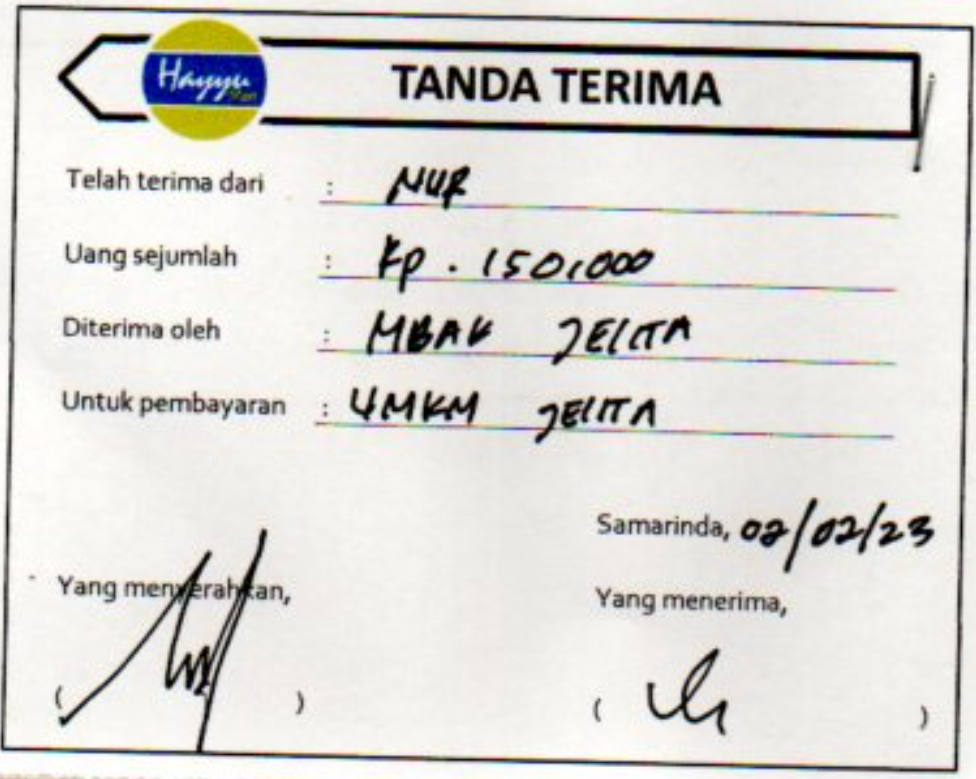 Hayyu Mart
TANDA TERIMA
Telah terima dari : NUR
Uang sejumlah : Rp. 150,000
Diterima oleh : MBAK JELITA
Untuk pembayaran : UMKM JELITA
Samarinda, 02/02/23
Yang menyerahkan,
Yang menerima,
( ) ( )